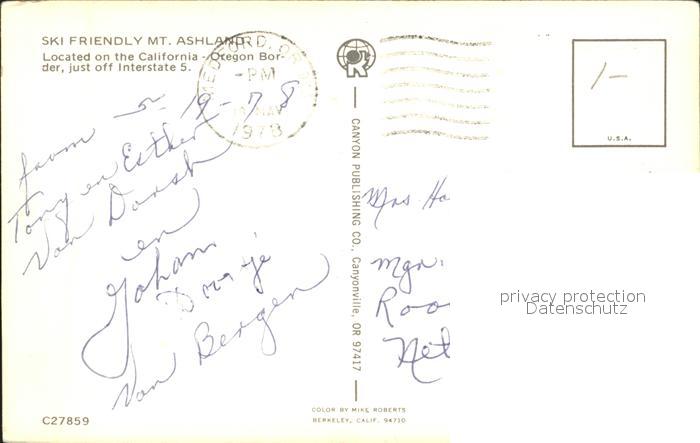 SKI FRIENDLY MT. ASHLAND
Located on the California - Oregon Bor-
der, just off Interstate 5.
MEDFORD, OR
PM
MAY
1978
5-19-78
from
Tony en Esther
Van Dorsh
en
Johann
Van Bergen
C27859
CANYON PUBLISHING CO., Canyonville, OR 97417
COLOR BY MIKE ROBERTS
BERKELEY, CALIF. 94710
1-
U.S.A.
Mrs Ha
Mgn.
Roo
Net
privacy protection
Datenschutz